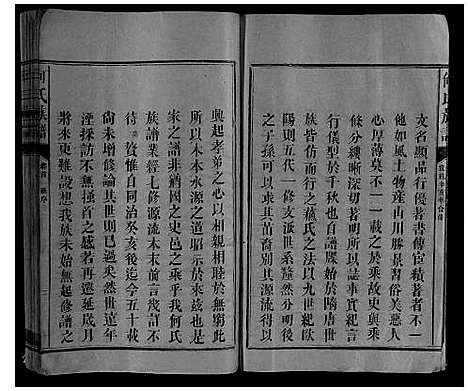 文名顯品行優著書傳宦積著者不一
他如風土物產山川勝景習俗美惡人
心厚薄莫不一一載之於乘故史與乘
條分縷晰深切著明所以誌事實紀言
行儀型於千秋也自譜廢於始興一修
族皆仿而行之蘓氏之法以九世紀歐
陽則五代一修支派世系釐然分明子
之於孫來之與其苗裔別其源流得以
興起孝弟之心以相親相睦於無窮此
所以木本水源之道昭示於來兹也是
家之譜非猶國之史邑之乘乎我何氏
族譜業經七修源流本末前言幾許不
待
贅惟自同治癸亥後迄今五十載
尚未增修論其世則已莫然世遠年
湮採訪旣有遺漏之感若再遷延歲月
將來更難設想我族未始無起修譜之
何氏族譜
卷首